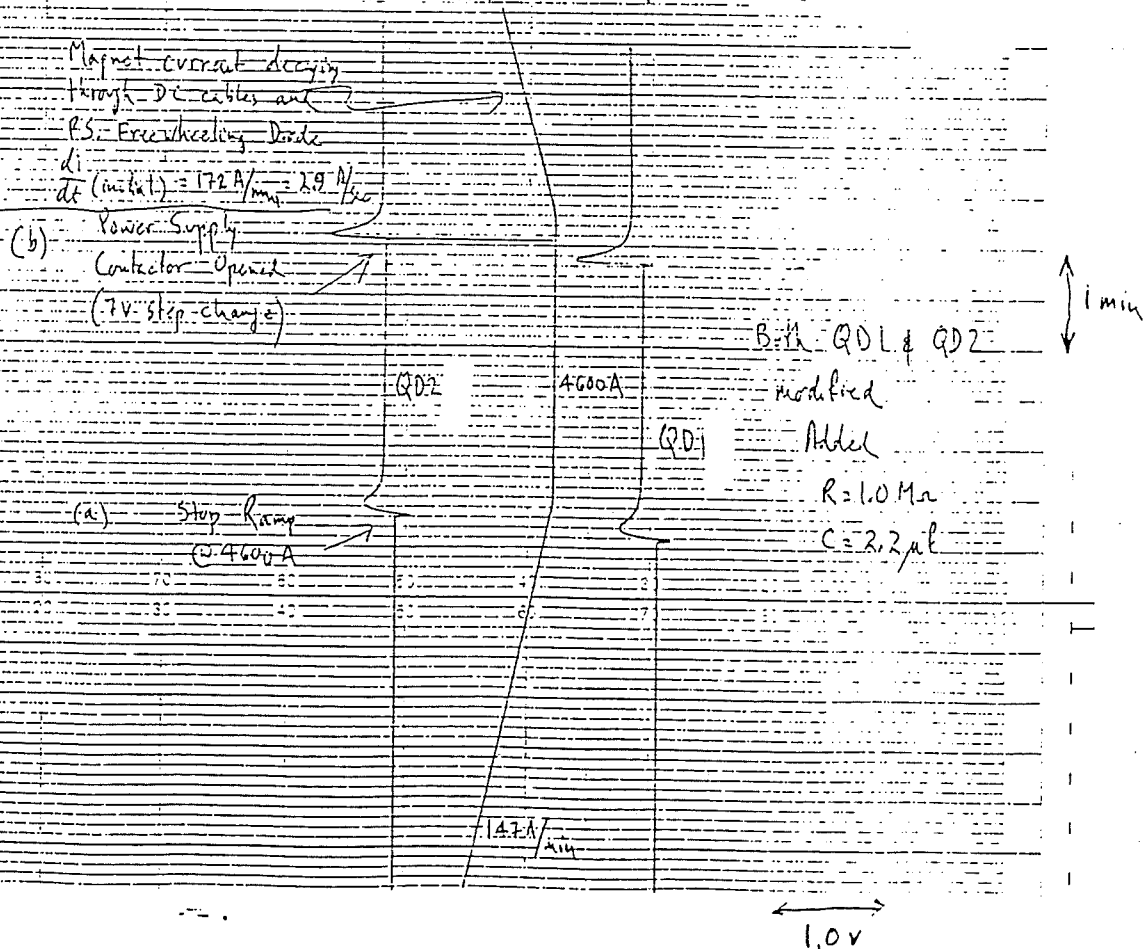 Magnet current decaying
through DC cables and
P.S. Freewheeling Diode
di/dt (initial) = 172 A/min = 2.9 A/sec
(b) Power Supply
Contactor Opened
(7V step change)
1 min
Both QD1 & QD2
modified
Added
R = 1.0 MΩ
C = 2.2 µf
QD2
4600A
QD1
(a) Stop Ramp
@ 4600A
70
30 40
147 A/min
1.0 V